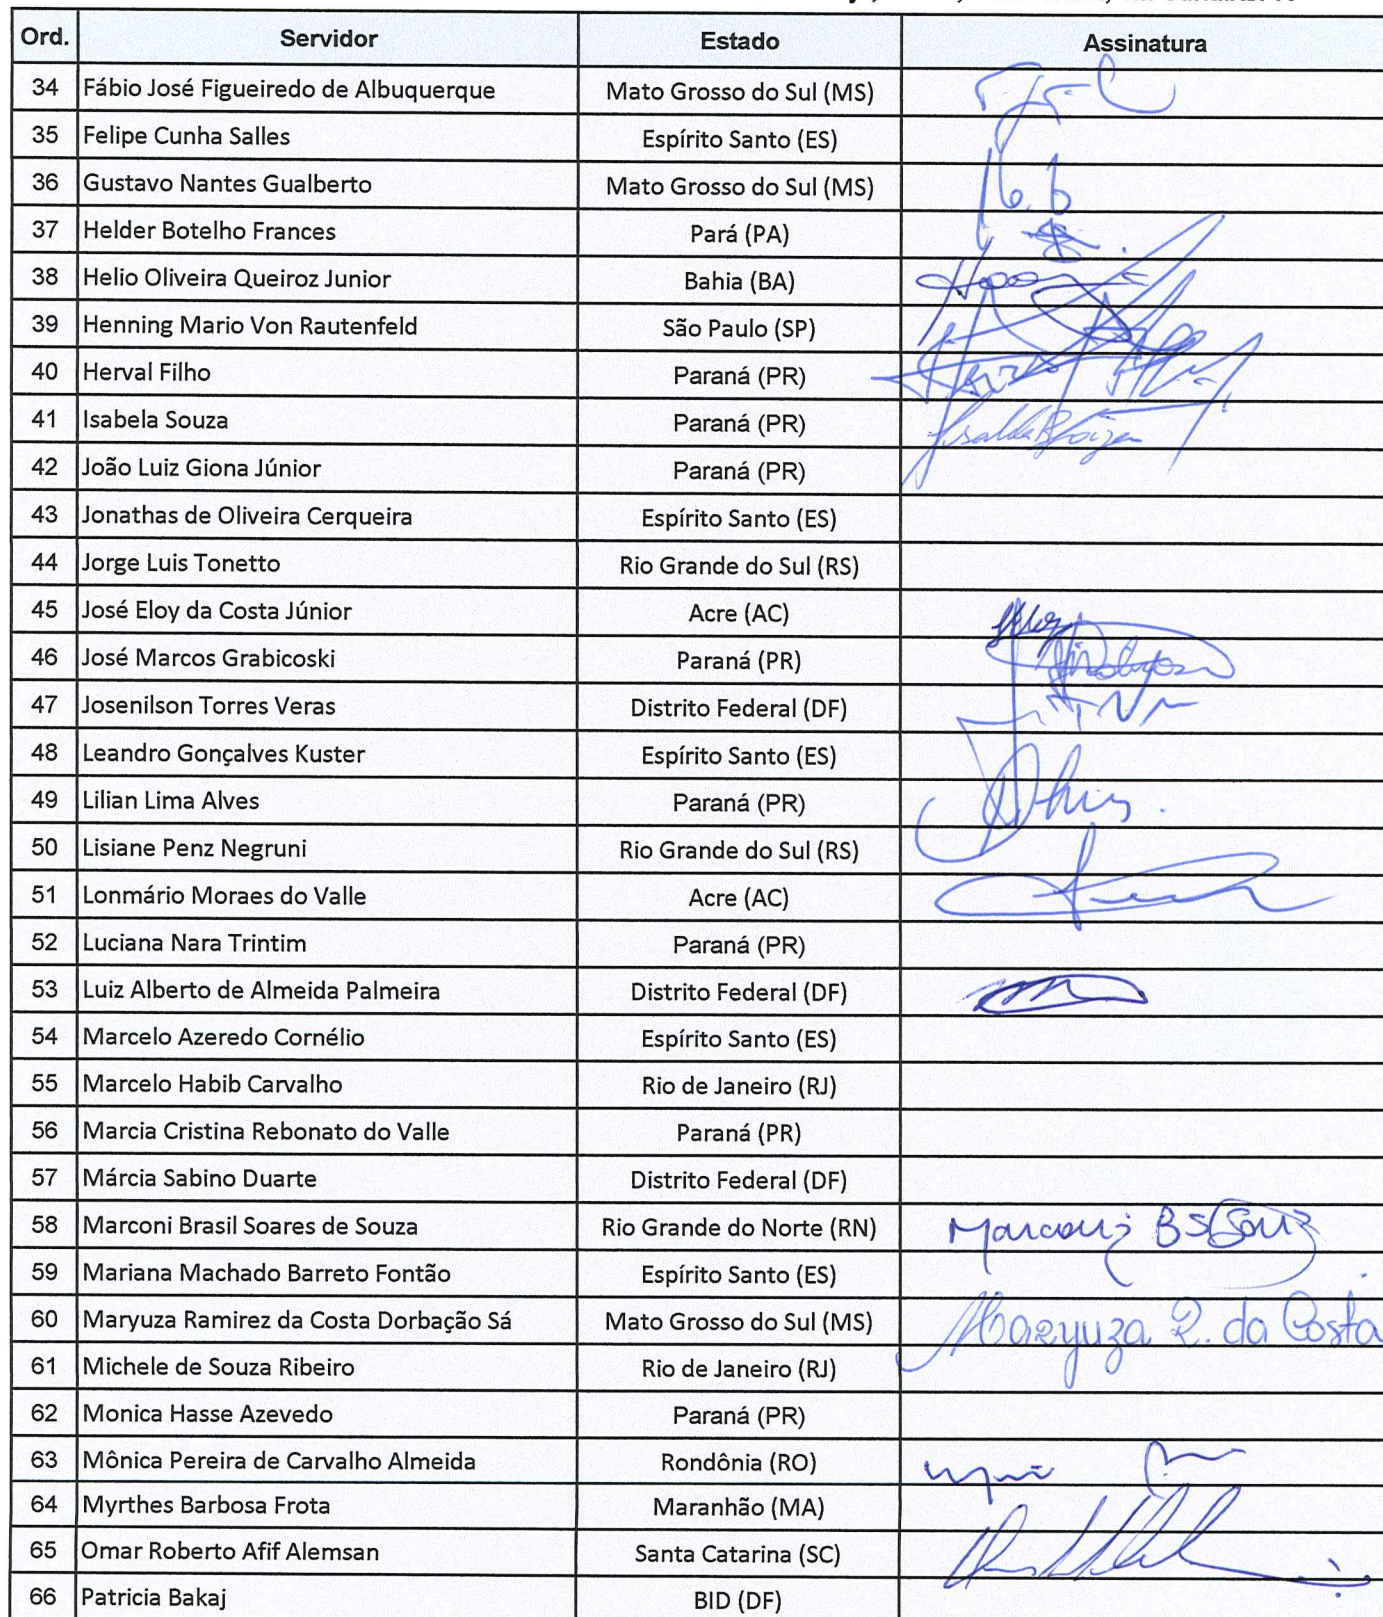 Ord. Servidor Estado Assinatura
34 Fábio José Figueiredo de Albuquerque Mato Grosso do Sul (MS)
35 Felipe Cunha Salles Espírito Santo (ES)
36 Gustavo Nantes Gualberto Mato Grosso do Sul (MS)
37 Helder Botelho Frances Pará (PA)
38 Helio Oliveira Queiroz Junior Bahia (BA)
39 Henning Mario Von Rautenfeld São Paulo (SP)
40 Herval Filho Paraná (PR)
41 Isabela Souza Paraná (PR)
42 João Luiz Giona Júnior Paraná (PR)
43 Jonathas de Oliveira Cerqueira Espírito Santo (ES)
44 Jorge Luis Tonetto Rio Grande do Sul (RS)
45 José Eloy da Costa Júnior Acre (AC)
46 José Marcos Grabicoski Paraná (PR)
47 Josenilson Torres Veras Distrito Federal (DF)
48 Leandro Gonçalves Kuster Espírito Santo (ES)
49 Lilian Lima Alves Paraná (PR)
50 Lisiane Penz Negruni Rio Grande do Sul (RS)
51 Lonmário Moraes do Valle Acre (AC)
52 Luciana Nara Trintim Paraná (PR)
53 Luiz Alberto de Almeida Palmeira Distrito Federal (DF)
54 Marcelo Azeredo Cornélio Espírito Santo (ES)
55 Marcelo Habib Carvalho Rio de Janeiro (RJ)
56 Marcia Cristina Rebonato do Valle Paraná (PR)
57 Márcia Sabino Duarte Distrito Federal (DF)
58 Marconi Brasil Soares de Souza Rio Grande do Norte (RN) Marconi BSSouz
59 Mariana Machado Barreto Fontão Espírito Santo (ES)
60 Maryuza Ramirez da Costa Dorbação Sá Mato Grosso do Sul (MS) Maryuza R. da Costa
61 Michele de Souza Ribeiro Rio de Janeiro (RJ)
62 Monica Hasse Azevedo Paraná (PR)
63 Mônica Pereira de Carvalho Almeida Rondônia (RO)
64 Myrthes Barbosa Frota Maranhão (MA)
65 Omar Roberto Afif Alemsan Santa Catarina (SC)
66 Patricia Bakaj BID (DF)